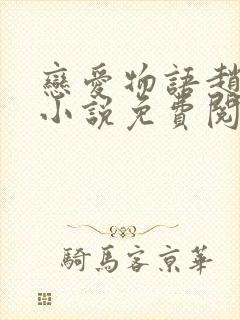 戀愛物語趙
小說免費閱
騎馬客京華